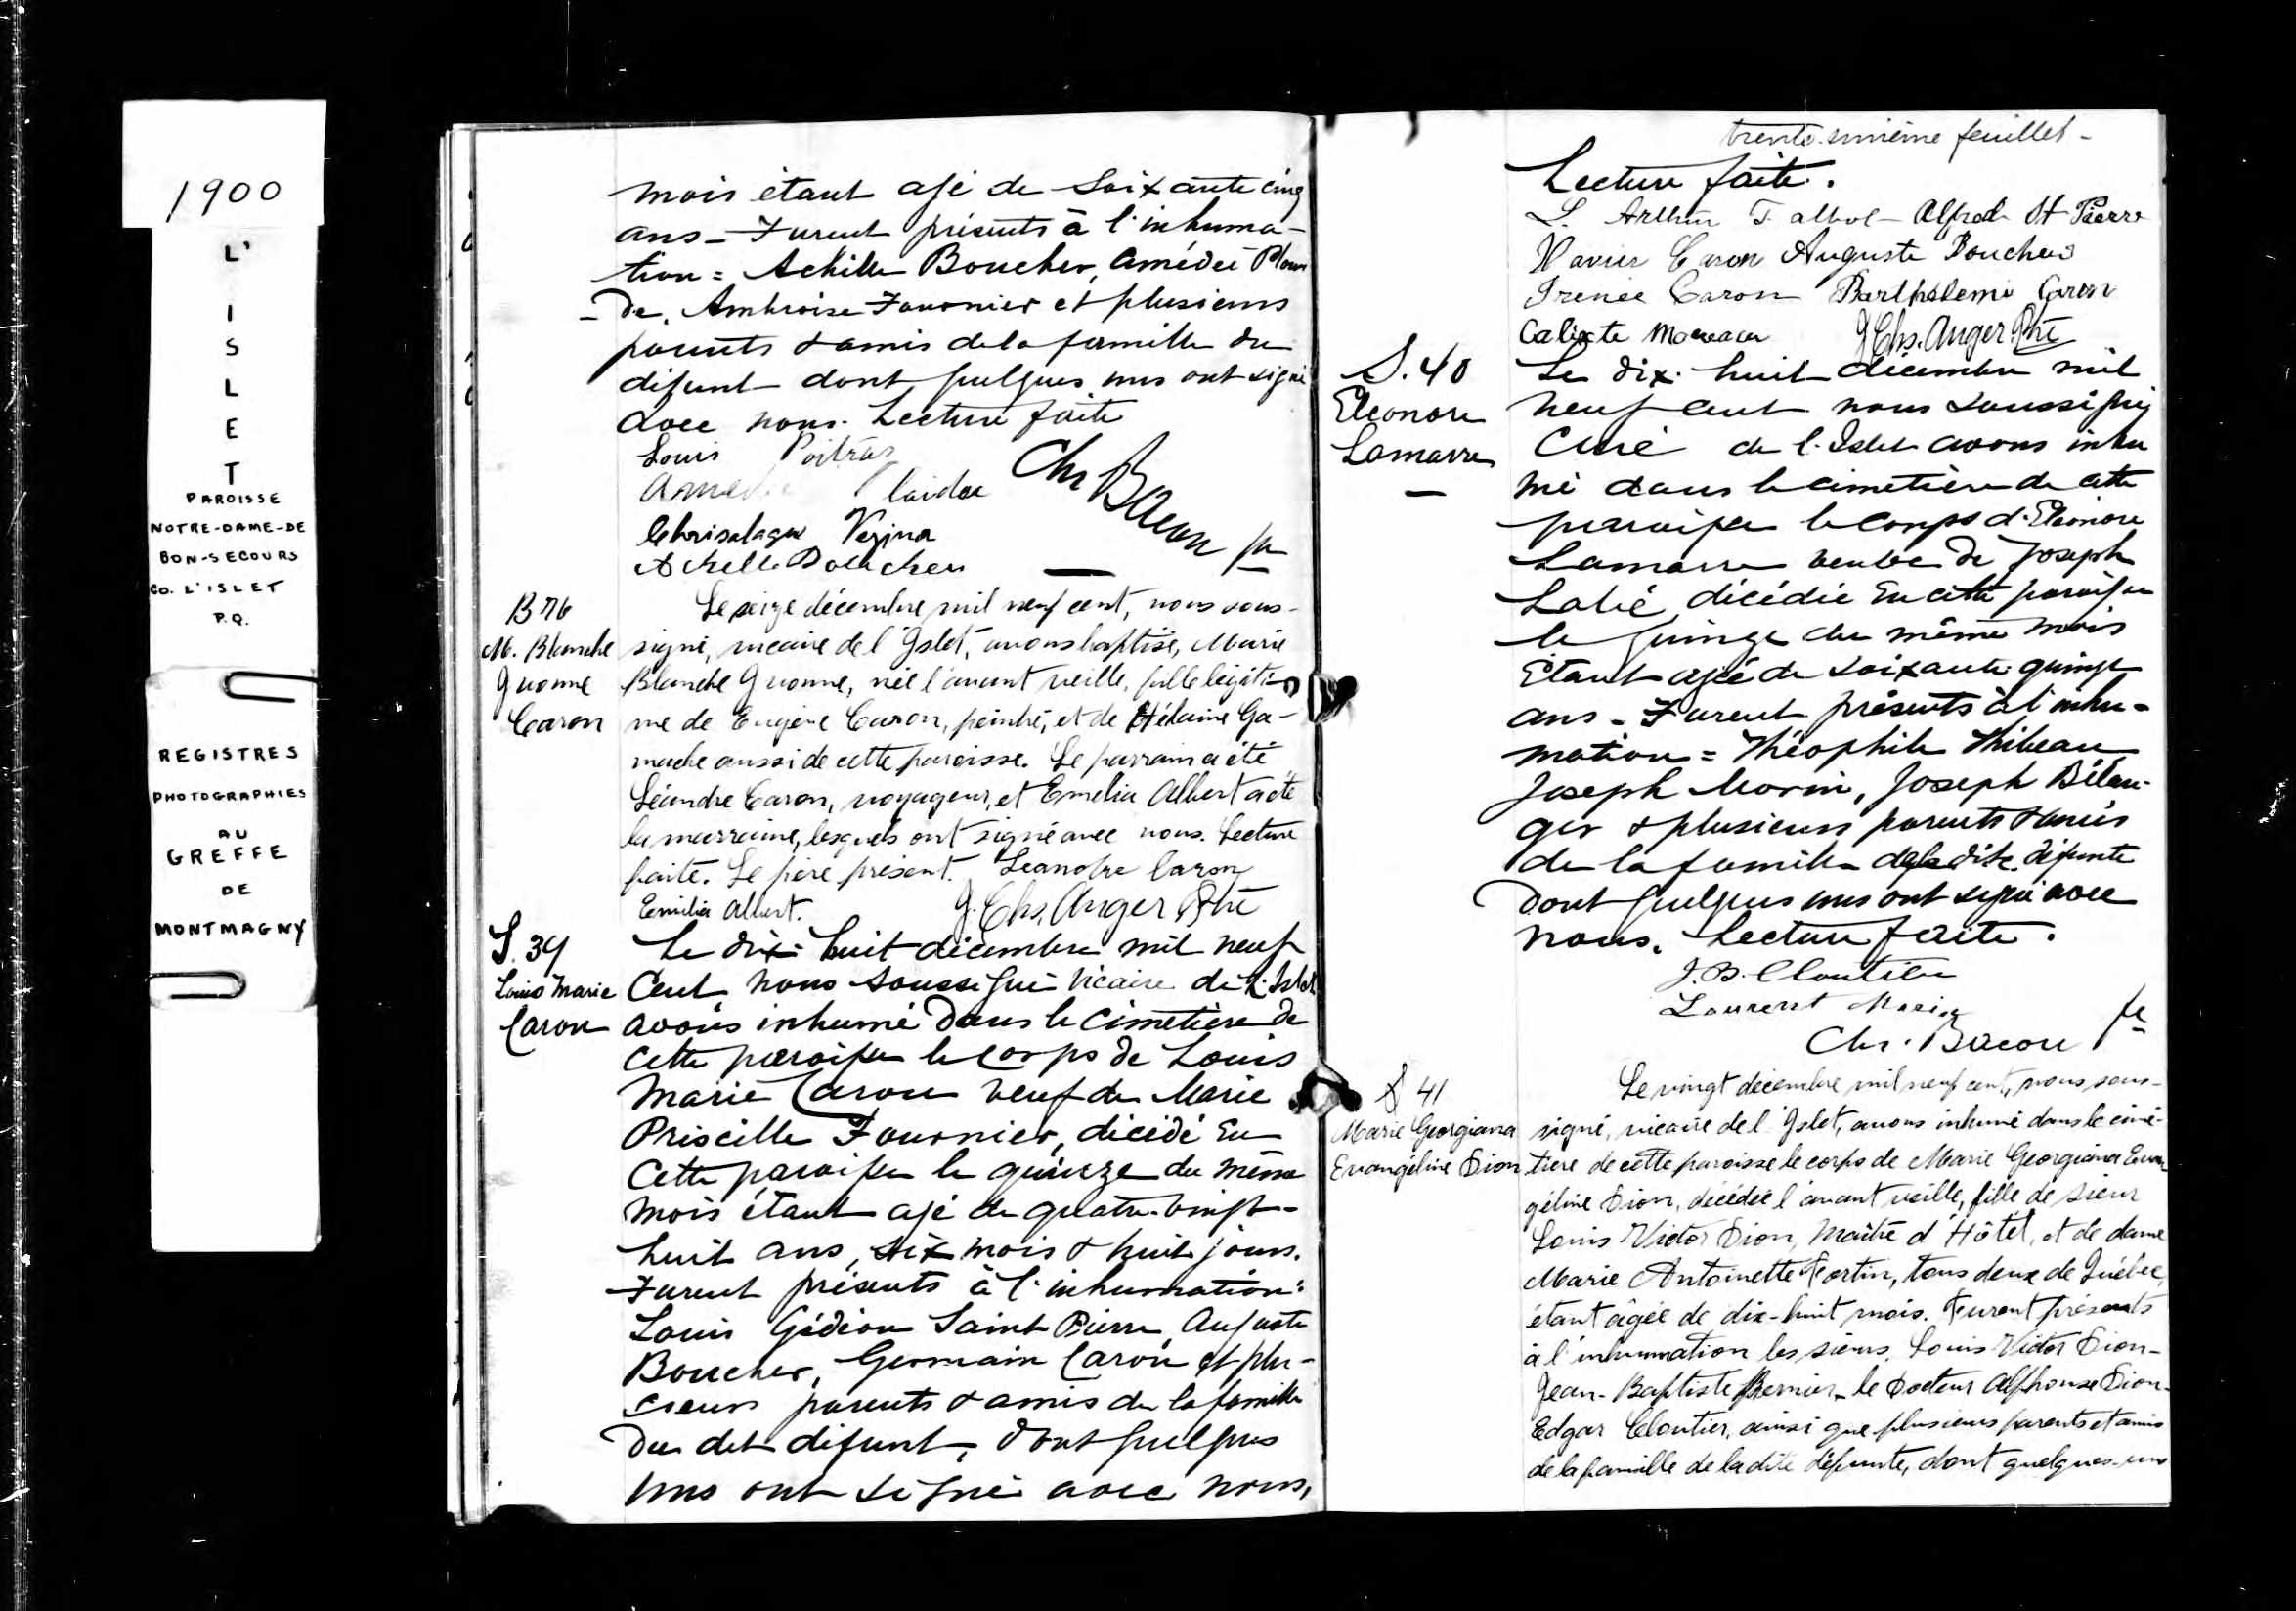 1900
L'
I
S
L
E
T
PAROISSE
NOTRE-DAME-DE
BON-SECOURS
CO. L'ISLET
P.Q.
REGISTRES
PHOTOGRAPHIES
AU
GREFFE
DE
MONTMAGNY
mois étant agé de Soixante cinq
ans - Furent présents à l'inhuma-
tion = Achille Boucher, Amédée Plour
de, Ambroise Fournier et plusieurs
parents & amis de la famille du
défunt dont quelques uns ont signé
avec nous. Lecture faite
Louis Poitras
Chs Bacon ptre
Vezina
Achille Boucher
B 76
M. Blanche
Yvonne
Caron
Le seize décembre mil neuf cent, nous sous-
signé, vicaire de l'Islet, avons baptisé, Marie
Blanche Yvonne, née l'avant veille, fille légiti-
me de Eugène Caron, peintre, et de Hélaine Ga-
mache aussi de cette paroisse. Le parrain a été
Léandre Caron, voyageur, et Emelia Albert a été
la marraine, lesquels ont signé avec nous. Lecture
faite. Le père présent. Leandre Caron
Emilia Albert. J. Chs. Anger Ptre
S. 39
Louis Marie
Caron
Le dix-huit décembre mil neuf
Cent nous soussigné Vicaire de L'Islet
avons inhumé dans le cimetière de
cette paroisse le corps de Louis
Marie Caron veuf de Marie
Priscille Fournier, décédé en
cette paroisse le quinze du même
mois étant agé de quatre-vingt-
huit ans, six mois & huit jours.
Furent présents à l'inhumation:
Louis Gédéon Saint Pierre, Auguste
Boucher, Germain Caron et plu-
sieurs parents & amis de la famille
du dit défunt, dont quelques
uns ont signé avec nous,
trente-sixième feuillet -
Lecture faite.
L. Arthur T albot - Alfred St Pierre
Xavier Caron Auguste Boucher
Irenée Caron Barthélemi Caron
Calixte Moreau J Chs. Anger. Ptre
S. 40
Eléonore
Lamarre
Le dix-huit décembre mil
neuf cent nous soussigné
Curé de l'Islet avons inhu
mé dans le cimetière de cette
paroisse le corps d'Eléonore
Lamarre veuve de Joseph
décédée en cette paroisse
le quinze du même mois
Étant agée de soixante-quinze
ans - Furent présents à l'inhu-
mation = Théophile Thibeau
Joseph Morin, Joseph Bélan-
ger & plusieurs parents & amis
de la famille de la dite défunte
dont quelques uns ont signé avec
nous. Lecture faite.
J. B. Cloutier
Laurent Morin
Chs. Bacon ptre
S 41
Marie Georgiana
Evangéline Dion
Le vingt décembre mil neuf cent, nous sous-
signé, vicaire de l'Islet, avons inhumé dans le cime-
tière de cette paroisse le corps de Marie Georgiana Evan
géline Dion, décédée l'avant veille, fille de sieur
Louis Victor Dion, Maître d'Hôtel, et de dame
Marie Antoinette Fortin, tous deux de Québec,
étant agée de dix-huit mois. Furent présents
à l'inhumation les sieurs, Louis Victor Dion -
Jean-Baptiste Bernier - le Docteur Alphonse Dion -
Edgar Cloutier, ainsi que plusieurs parents et amis
de la famille de la dite défunte, dont quelques-uns